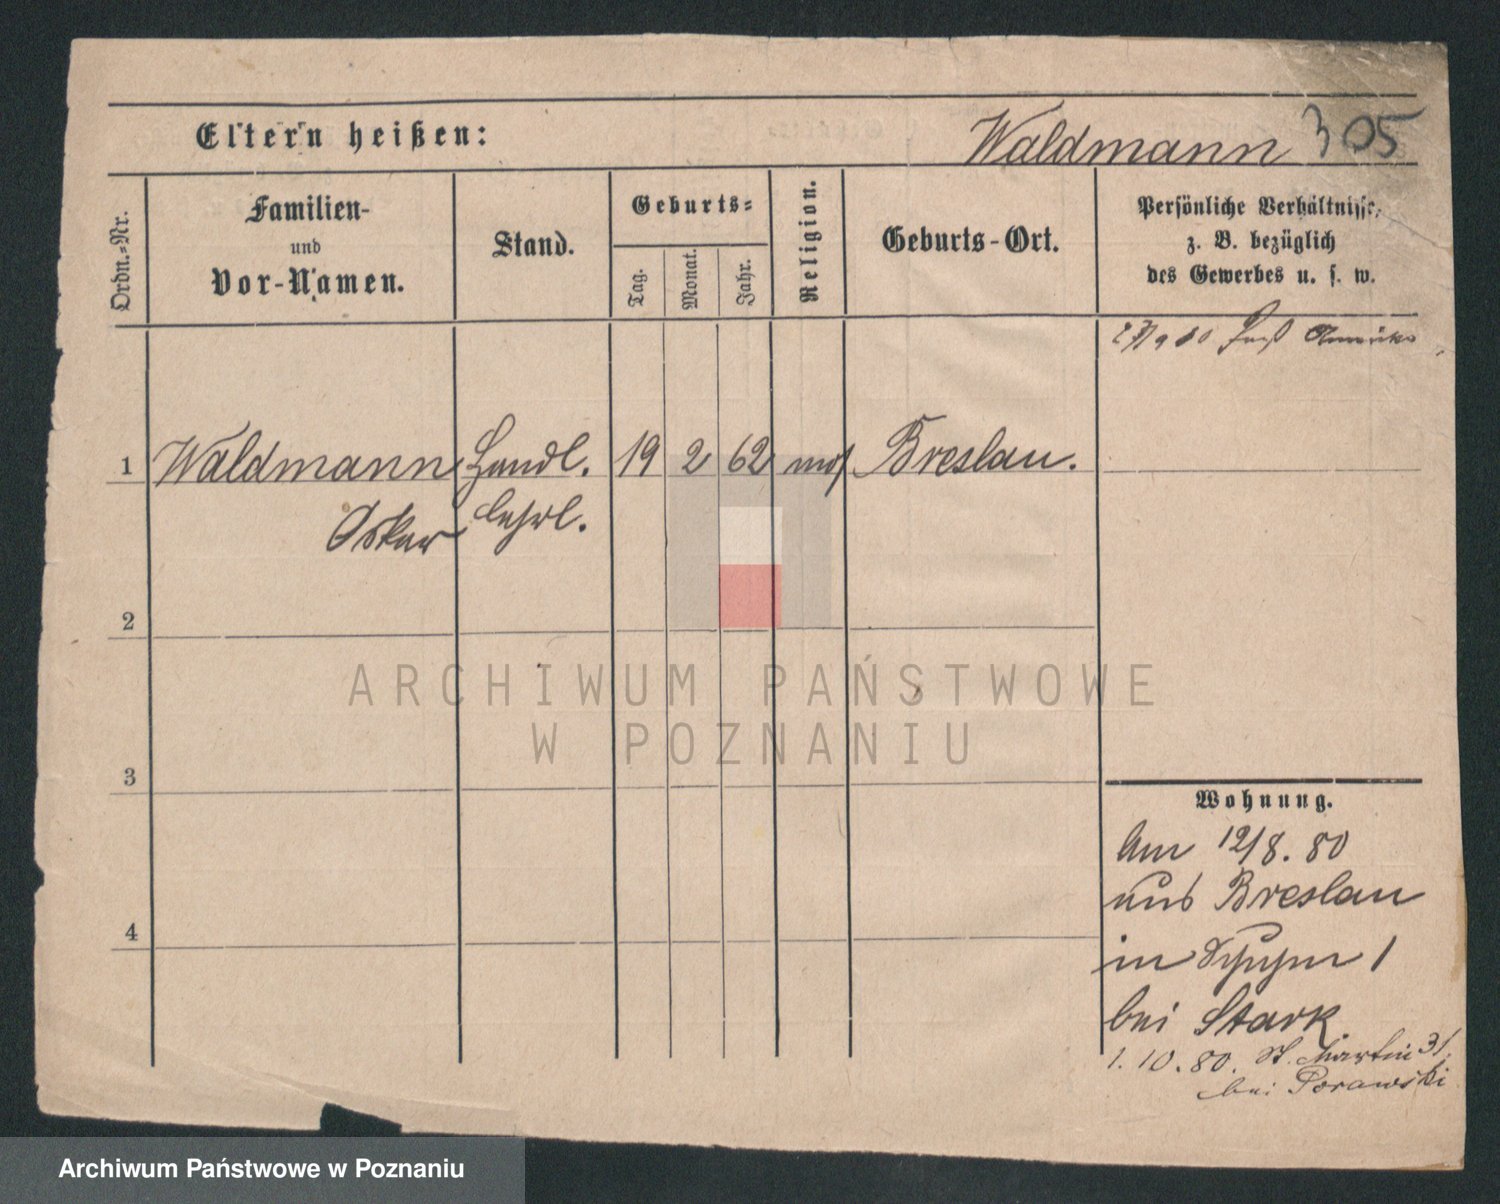 Eltern heißen:
Waldmann 305
Ordn.-Nr.
Familien-
und
Vor-Namen.
Stand.
Geburts-
Tag.
Monat.
Jahr.
Religion.
Geburts-Ort.
Persönliche Verhältnisse,
z. B. bezüglich
des Gewerbes u. s. w.
Amerika
1 Waldmann Handl. 19 2 62 mos Breslau.
Oskar lehrl.
2
3
4
Wohnung.
Am 12/8. 80
aus Breslau
in 1
bei Stark
1. 10. 80. St. Martin 31
bei Porawski
ARCHIWUM PAŃSTWOWE
W POZNANIU
Archiwum Państwowe w Poznaniu